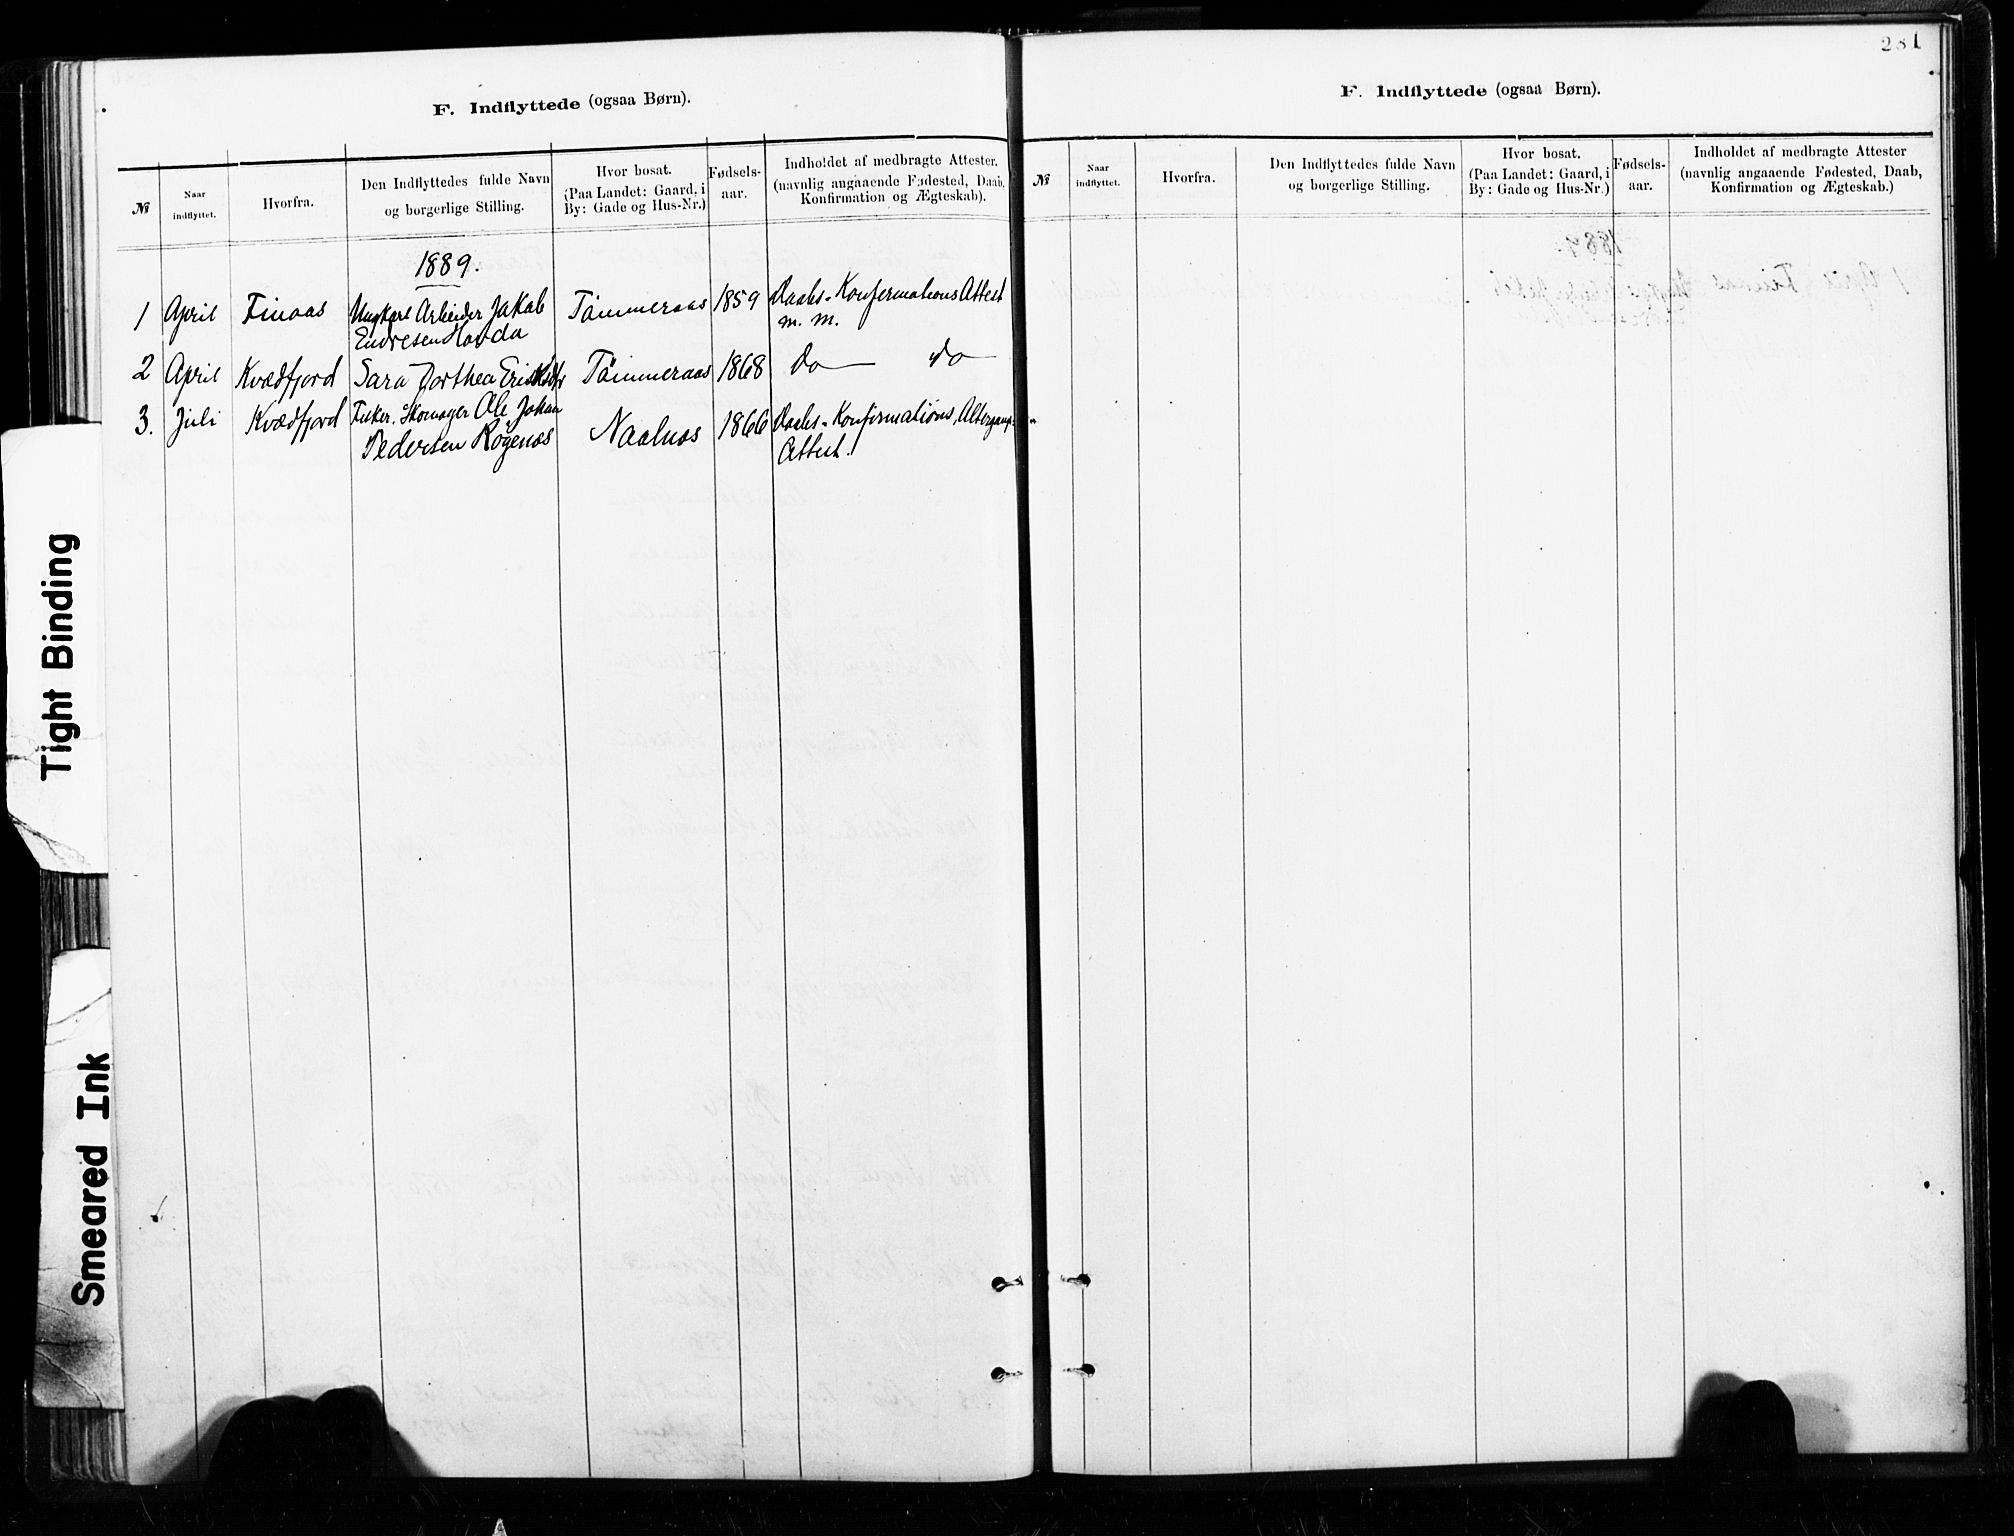 281
F. Indflyttede (ogsaa Børn).
№
Naar
indflyttet.
Hvorfra.
Den Indflyttedes fulde Navn
og borgerlige Stilling.
Hvor bosat.
(Paa Landet: Gaard, i
By: Gade og Hus-Nr.)
Fødsels-
aar.
Indholdet af medbragte Attester.
(navnlig angaaende Fødested, Daab,
Konfirmation og Ægteskab).
1889.
1 April Finaas Ungkarl Arbeider Jakob Tömmeraas 1859 Daabs- Konfirmations Attest
Endresen Hovda m. m.
2 April Kvædfjord Sara Dorthea Eriksdtr Tömmeraas 1868 do do
3. Juli Kvædfjord Fisker. Skomager Ole Johan Naalnæs 1866 Daabs- Konfirmations, Altergangs-
Pedersen Røgenæs Attest.
F. Indflyttede (ogsaa Børn).
№
Naar
indflyttet.
Hvorfra.
Den Indflyttedes fulde Navn
og borgerlige Stilling.
Hvor bosat.
(Paa Landet: Gaard, i
By: Gade og Hus-Nr.)
Fødsels-
aar.
Indholdet af medbragte Attester
(navnlig angaaende Fødested, Daab,
Konfirmation og Ægteskab.)
Tight Binding
Smeared Ink